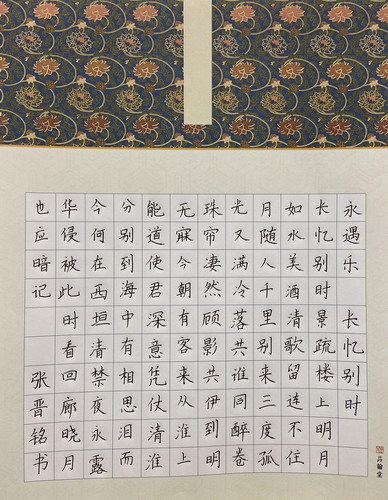 永遇乐 长忆别时
长忆别时景疏楼上明月
如水美酒清歌留连不住
月随人千里别来三度孤
光又满冷落共谁同醉卷
珠帘凄然顾影共伊到明
无寐今朝有客来从淮上
能道使君深意凭仗清淮
分别到海中有相思泪而
今何在西垣清禁夜永露
华侵被此时看回廊晓月
也应暗记 张晋铭书
品翰堂